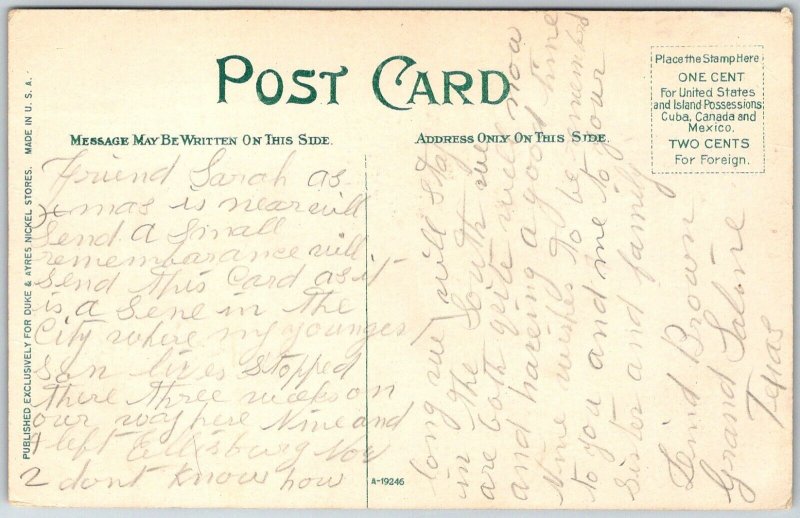 POST CARD
MESSAGE MAY BE WRITTEN ON THIS SIDE.
ADDRESS ONLY ON THIS SIDE.
Place the Stamp Here
ONE CENT
For United States
and Island Possessions
Cuba, Canada and
Mexico.
TWO CENTS
For Foreign.
PUBLISHED EXCLUSIVELY FOR DUKE & AYRES NICKEL STORES. MADE IN U. S. A.
Friend Sarah as
xmas is near will
send a small
rememberance will
send this Card as it
is a Sene in the
City where my younges
son lives stopped
there three weeks on
our way here Nine and
I left Ellisburg Nov
2 dont know how
long we will stay
in the South we
are both quite well now
and having a good time
Nine wishes to be rememberd
to you and me to your
sister and family
Brown
Grand Saline
Texas
A-19246